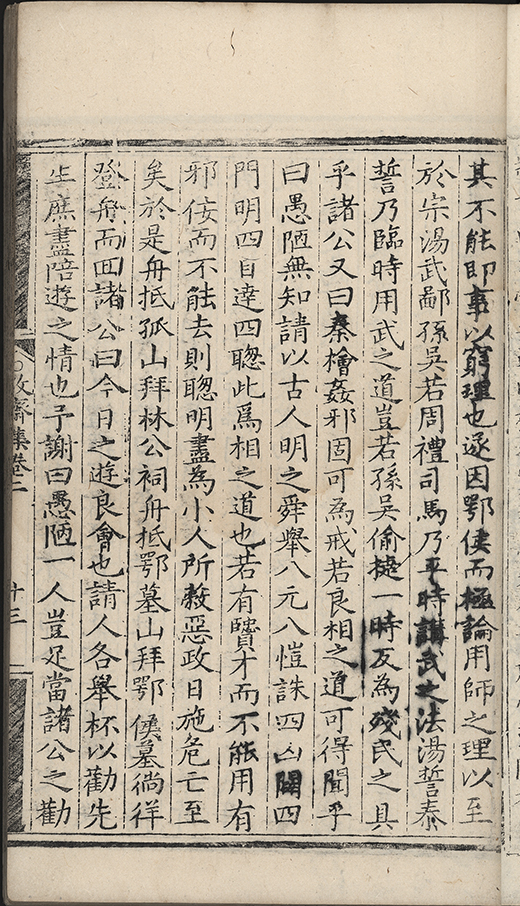 其不能即事以窮理也遂因鄂侯而極論用師之理以至
於宗湯武鄙孫吳若周禮司馬乃平時講武之法湯誓泰
誓乃臨時用武之道豈若孫吳偷㨗一時反為殘民之具
乎諸公又曰秦檜姦邪固可為戒若良相之道可得聞乎
曰愚陋無知請以古人明之舜舉八元八愷誅四凶闢四
門明四目達四聰此爲相之道也若有賢才而不能用有
邪佞而不能去則聰明盡為小人所敹惡政日施危亡至
矣於是舟抵孤山拜林公祠舟抵鄂墓山拜鄂侯墓徜徉
登舟而回諸公曰今日之遊良會也請人各舉杯以勸先
生庶盡陪遊之情也予謝曰愚陋一人豈足當諸公之勸
敬齋集卷二 十三